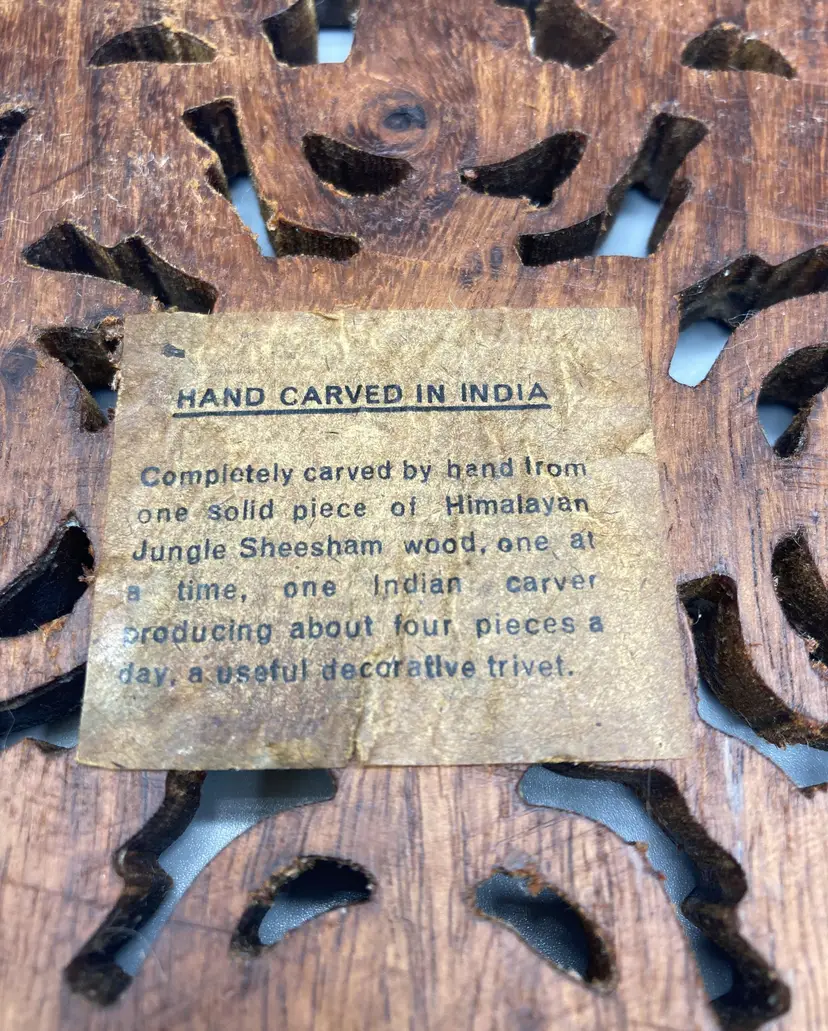 HAND CARVED IN INDIA
Completely carved by hand from
one solid piece of Himalayan
Jungle Sheesham wood, one at
a time, one Indian carver
producing about four pieces a
day, a useful decorative trivet.